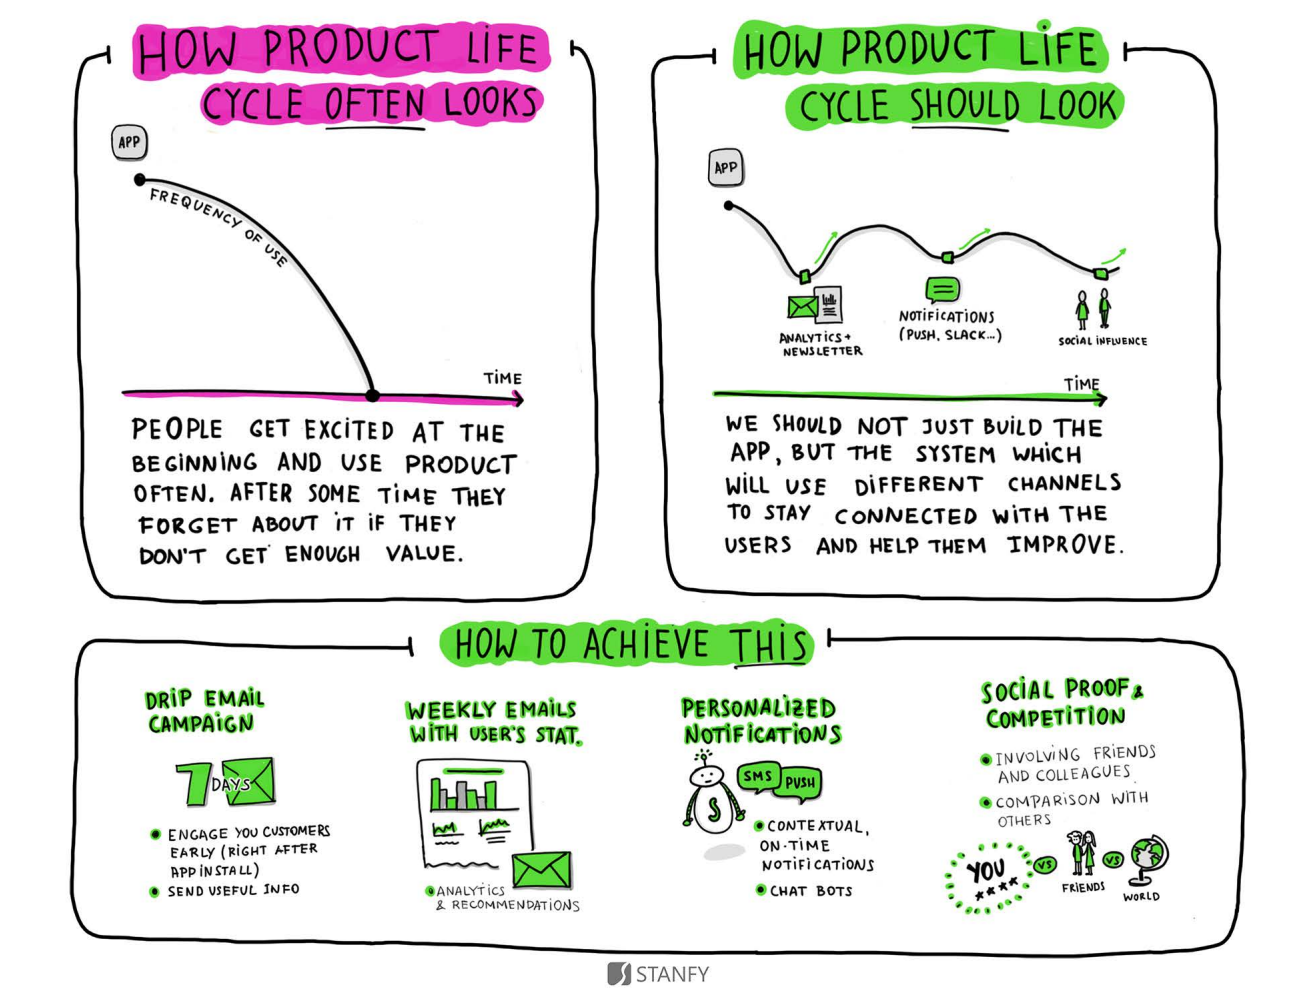 HOW PRODUCT LIFE
CYCLE OFTEN LOOKS
APP
FREQUENCY OF USE
TIME
PEOPLE GET EXCITED AT THE
BEGINNING AND USE PRODUCT
OFTEN. AFTER SOME TIME THEY
FORGET ABOUT IT IF THEY
DON'T GET ENOUGH VALUE.
HOW PRODUCT LIFE
CYCLE SHOULD LOOK
APP
ANALYTICS +
NEWSLETTER
NOTIFICATIONS
(PUSH, SLACK...)
SOCIAL INFLUENCE
TIME
WE SHOULD NOT JUST BUILD THE
APP, BUT THE SYSTEM WHICH
WILL USE DIFFERENT CHANNELS
TO STAY CONNECTED WITH THE
USERS AND HELP THEM IMPROVE.
HOW TO ACHIEVE THIS
DRIP EMAIL
CAMPAIGN
7 DAYS
ENGAGE YOU CUSTOMERS
EARLY (RIGHT AFTER
APP INSTALL)
SEND USEFUL INFO
WEEKLY EMAILS
WITH USER'S STAT.
ANALYTICS
& RECOMMENDATIONS
PERSONALIZED
NOTIFICATIONS
SMS
PUSH
S
CONTEXTUAL,
ON-TIME
NOTIFICATIONS
CHAT BOTS
SOCIAL PROOF &
COMPETITION
INVOLVING FRIENDS
AND COLLEAGUES
COMPARISON WITH
OTHERS
YOU
VS
FRIENDS
VS
WORLD
STANFY